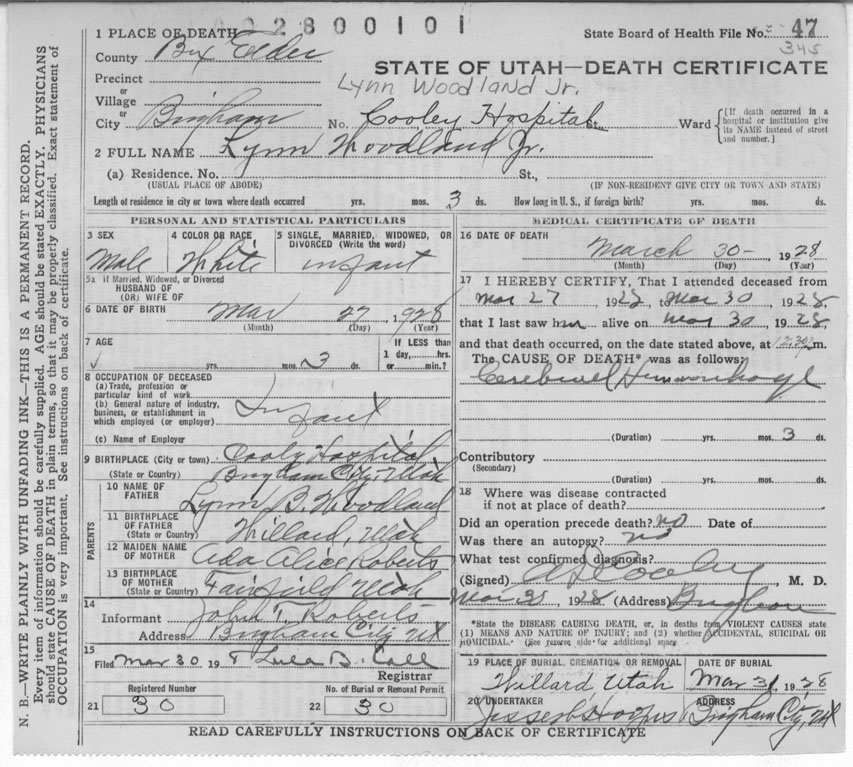 2800101
1 PLACE OF DEATH
State Board of Health File No. 47
345
County Box Elder
STATE OF UTAH—DEATH CERTIFICATE
Precinct
or
Lynn Woodland Jr.
Village
or
City Brigham No. Cooley Hospital St., Ward [If death occurred in a hospital or institution give its NAME instead of street and number.]
2 FULL NAME Lynn Woodland Jr.
(a) Residence. No. St.,
(USUAL PLACE OF ABODE) (IF NON-RESIDENT GIVE CITY OR TOWN AND STATE)
Length of residence in city or town where death occurred yrs. mos. 3 ds. How long in U. S., if foreign birth? yrs. mos. ds.
PERSONAL AND STATISTICAL PARTICULARS
3 SEX 4 COLOR OR RACE 5 SINGLE, MARRIED, WIDOWED, OR
DIVORCED (Write the word)
Male White infant
5a if Married, Widowed, or Divorced
HUSBAND OF
(OR) WIFE OF
6 DATE OF BIRTH Mar 27, 1928
(Month) (Day) (Year)
7 AGE If LESS than
1 day,....hrs.
yrs. mos. 3 ds. or........min.?
8 OCCUPATION OF DECEASED
(a) Trade, profession or
particular kind of work
(b) General nature of industry,
business, or establishment in
which employed (or employer)
Infant
(c) Name of Employer
9 BIRTHPLACE (City or town) Cooly Hospital
(State or Country) Brigham City, Utah
PARENTS
10 NAME OF
FATHER Lynn B. Woodland
11 BIRTHPLACE
OF FATHER
(State or Country) Willard, Utah
12 MAIDEN NAME
OF MOTHER Ada Alice Roberts
13 BIRTHPLACE
OF MOTHER
(State or Country) Fairfield Utah
14
Informant John T. Roberts
Address Brigham City Ut
15
Filed Mar 30 19 8 Lula B. Call
Registrar
Registered Number No. of Burial or Removal Permit
21 30 22 30
MEDICAL CERTIFICATE OF DEATH
16 DATE OF DEATH
March 30- , 1928
(Month) (Day) (Year)
17 I HEREBY CERTIFY, That I attended deceased from
Mar 27, 1928, to Mar 30, 1928
that I last saw him alive on Mar 30, 1928
and that death occurred, on the date stated above, at m.
The CAUSE OF DEATH* was as follows:
Cerebral Hemorrhage
(Duration) yrs. mos. 3 ds.
Contributory
(Secondary)
(Duration) yrs. mos. ds.
18 Where was disease contracted
if not at place of death?
Did an operation precede death? no Date of
Was there an autopsy? no
What test confirmed diagnosis?
(Signed) Cooley, M. D.
Mar 30, 1928 (Address) Brigham
*State the DISEASE CAUSING DEATH, or, in deaths from VIOLENT CAUSES state
(1) MEANS AND NATURE OF INJURY; and (2) whether ACCIDENTAL, SUICIDAL OR
HOMICIDAL. (See reverse side for additional space
19 PLACE OF BURIAL, CREMATION OR REMOVAL DATE OF BURIAL
Willard Utah Mar 31, 1928
20 UNDERTAKER ADDRESS
Brigham City, Ut
READ CAREFULLY INSTRUCTIONS ON BACK OF CERTIFICATE
N. B.—WRITE PLAINLY WITH UNFADING INK—THIS IS A PERMANENT RECORD.
Every item of information should be carefully supplied. AGE should be stated EXACTLY. PHYSICIANS
should state CAUSE OF DEATH in plain terms, so that it may be properly classified. Exact statement of
OCCUPATION is very important. See instructions on back of certificate.